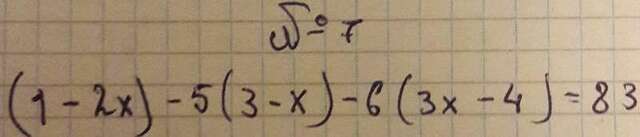 № 7
(1 - 2x) - 5(3 - x) - 6(3x - 4) = 83